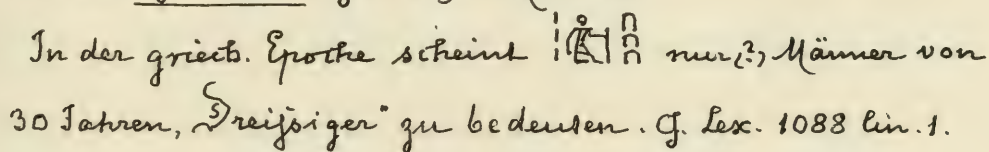 In der griech. Epoche scheint 𓏤𓀀𓏤𓎆𓎆𓎆 nur(?) Männer von
30 Jahren, „Dreißiger“ zu bedeuten. Cf. Lex. 1088 lin. 1.